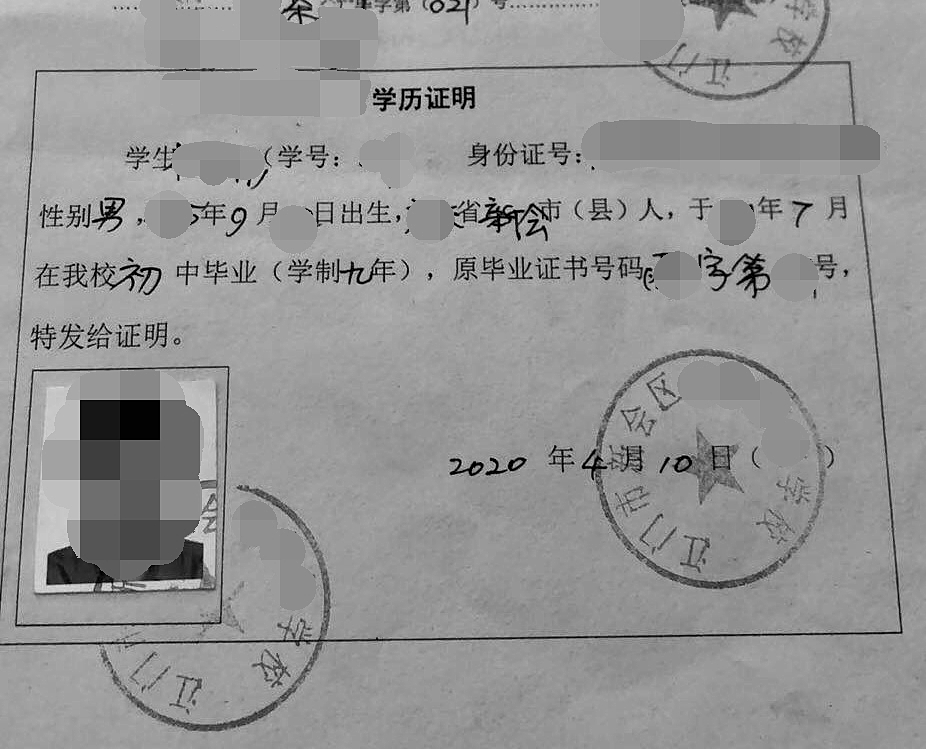 学第（021）号
学历证明
学生（学号： 身份证号：
性别男，年9月日出生，省新会市（县）人，于年7月
在我校初中毕业（学制九年），原毕业证书号码字第号，
特发给证明。
2020年4月10日（ ）
江门市新会区学校
江门学校
江门学校